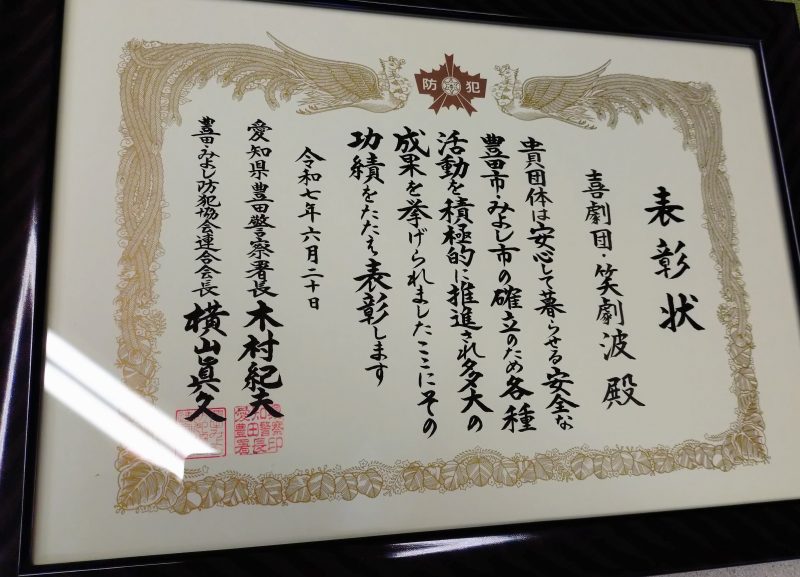 防犯
表彰状
喜劇団・笑劇波 殿
貴団体は安心して暮らせる安全な
豊田市・みよし市の確立のため各種
活動を積極的に推進され多大の
成果を挙げられましたここにその
功績をたたえ表彰します
令和七年六月二十日
愛知県豊田警察署長 木村紀夫
豊田みよし防犯協会連合会長 横山眞久